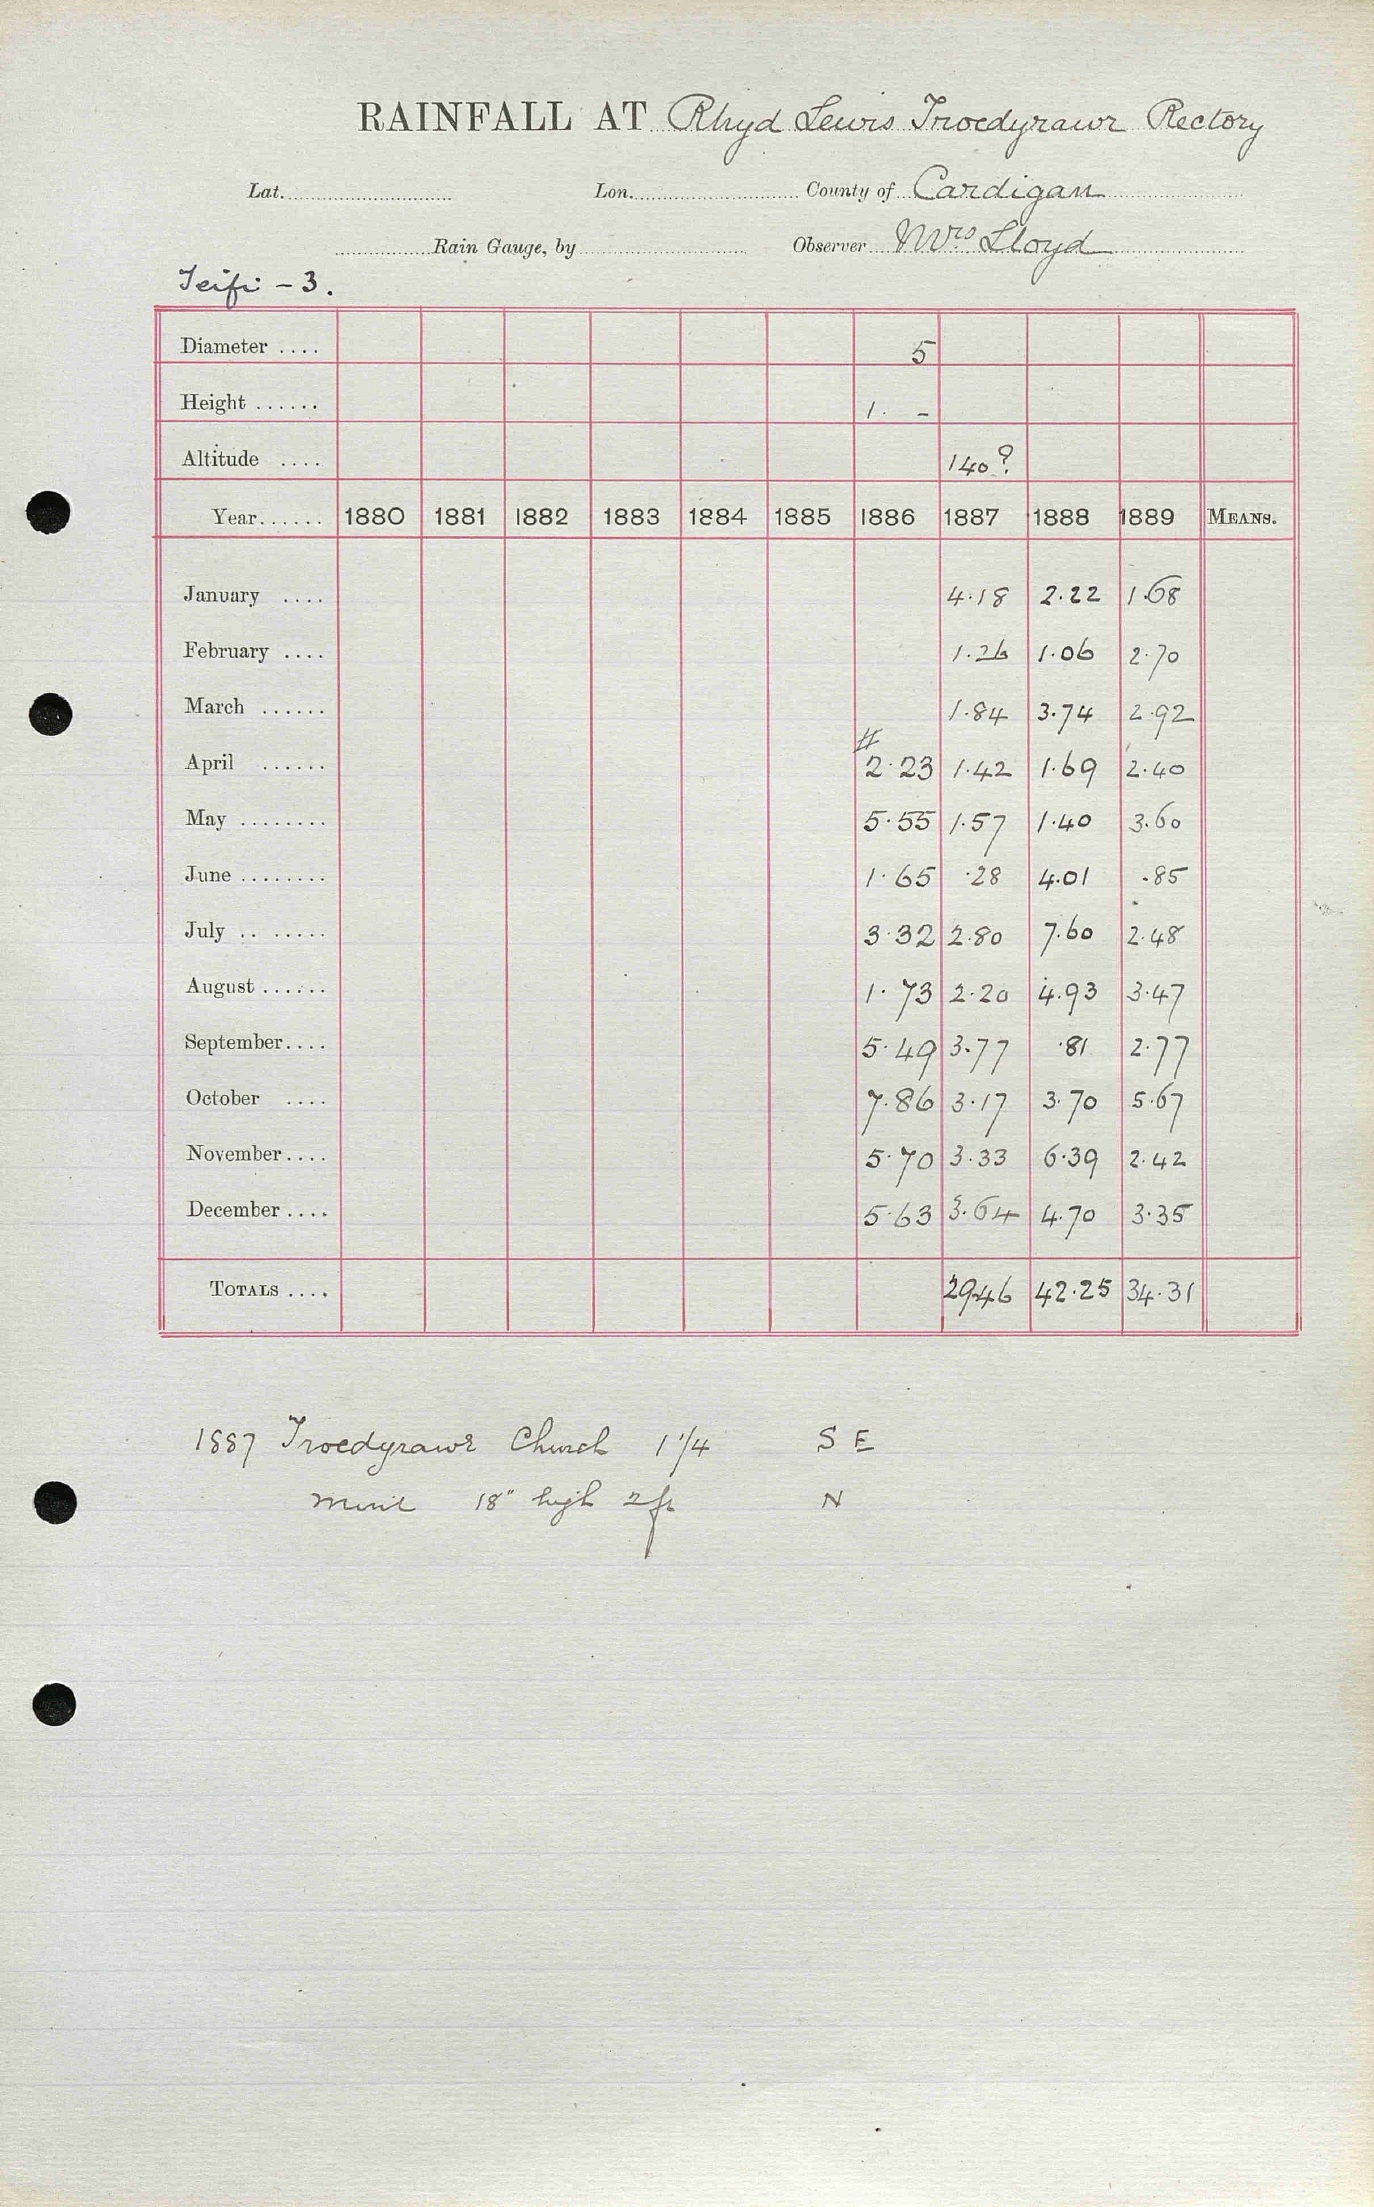 RAINFALL AT Rhyd Lewis Troedyrawr Rectory
Lat. Lon. County of Cardigan
Rain Gauge, by Observer Mrs Lloyd
Teifi - 3.
Diameter .... 5
Height ...... 1. -
Altitude .... 140?
Year...... 1880 1881 1882 1883 1884 1885 1886 1887 1888 1889 MEANS.
January .... 4.18 2.22 1.68
February .... 1.26 1.06 2.70
March ...... 1.84 3.74 2.92
#
April ...... 2.23 1.42 1.69 2.40
May ........ 5.55 1.57 1.40 3.60
June ........ 1.65 .28 4.01 .85
July .. ..... 3.32 2.80 7.60 2.48
August ...... 1.73 2.20 4.93 3.47
September.... 5.49 3.77 .81 2.77
October .... 7.86 3.17 3.70 5.67
November.... 5.70 3.33 6.39 2.42
December .... 5.63 3.64 4.70 3.35
TOTALS .... 29.46 42.25 34.31
1887 Troedyrawr Church 1 1/4 S E
18" high 2 ft N